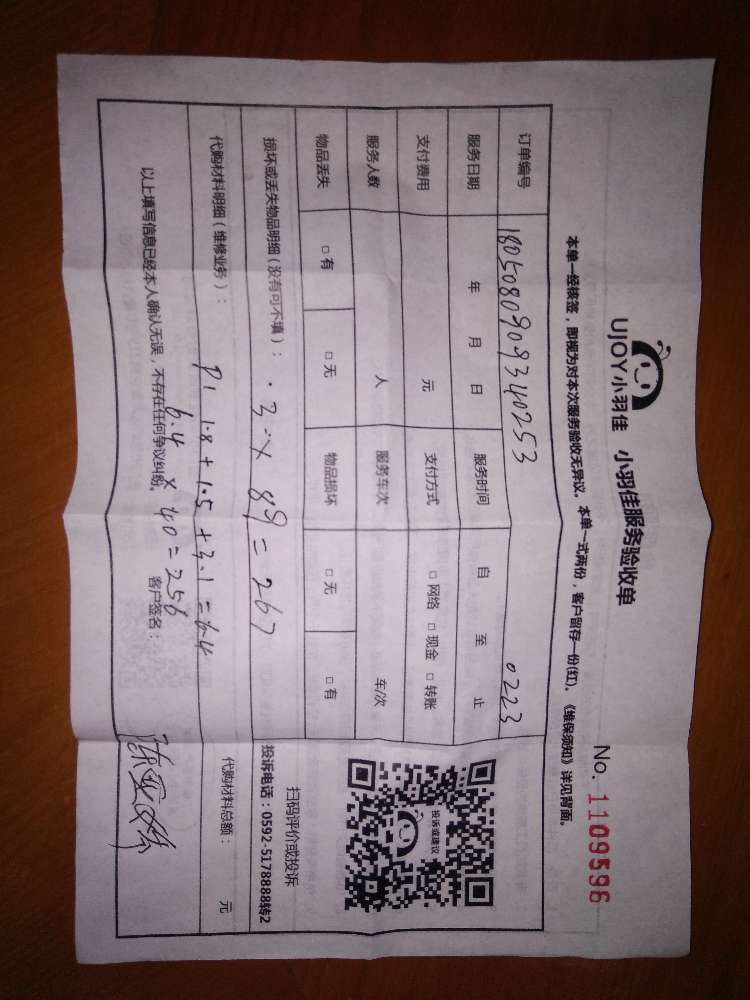 UJOY小羽佳 小羽佳服务验收单
No. 1109596
本单一经核签，即视为对本次服务验收无异议。本单一式两份，客户留存一份(红)。《维保须知》详见背面。
订单编号 1805080909340253 0223
服务日期 年 月 日 服务时间 自 至 止
支付费用 元 支付方式 □ 网络 □ 现金 □ 转账
服务人数 人 服务车次 车/次
物品丢失 □ 有 □ 无 物品损坏 □ 无 □ 有
投诉或建议
扫码评价或投诉
投诉电话：0592-5178888转2
损坏或丢失物品明细（没有可不填）：
3 × 89 = 267
代购材料明细（维修业务）：
P1 1.8 + 1.5 + 3.1 = 6.4
6.4 × 40 = 256
代购材料总额： 元
以上填写信息已经本人确认无误，不存在任何争议纠纷。 客户签名：